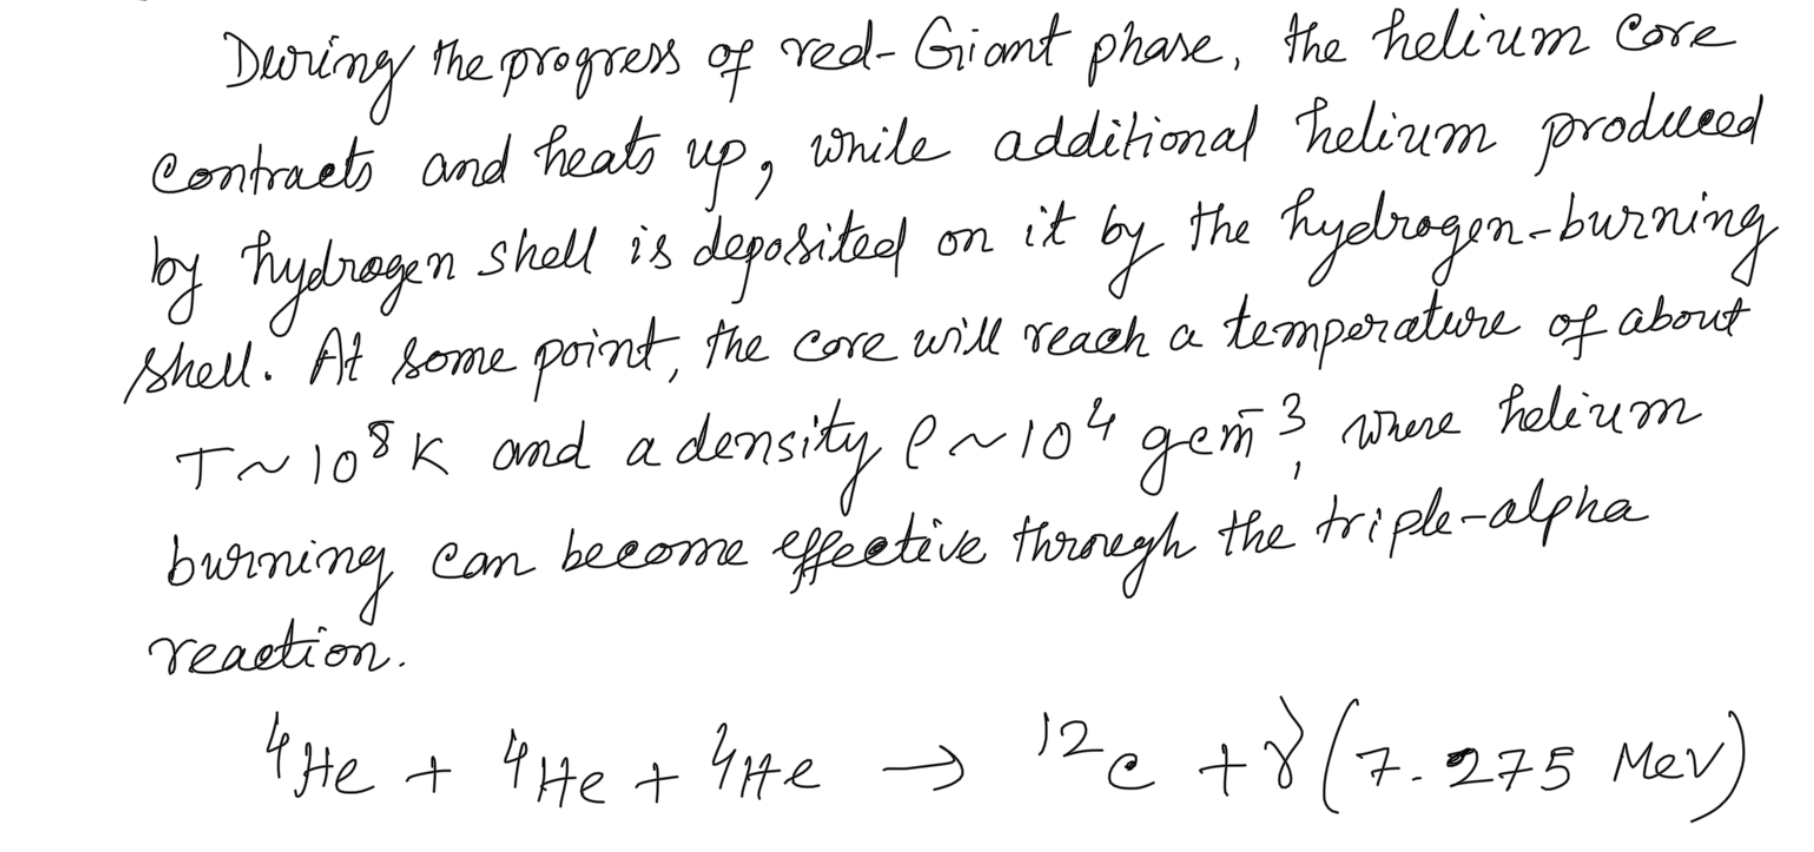 During the progress of red-Giant phase, the helium core
contracts and heats up, while additional helium produced
by hydrogen shell is deposited on it by the hydrogen-burning
shell. At some point, the core will reach a temperature of about
T ~ 10⁸ K and a density ρ ~ 10⁴ gcm⁻³, where helium
burning can become effective through the triple-alpha
reaction.
⁴He + ⁴He + ⁴He → ¹²C + γ (7.275 MeV)